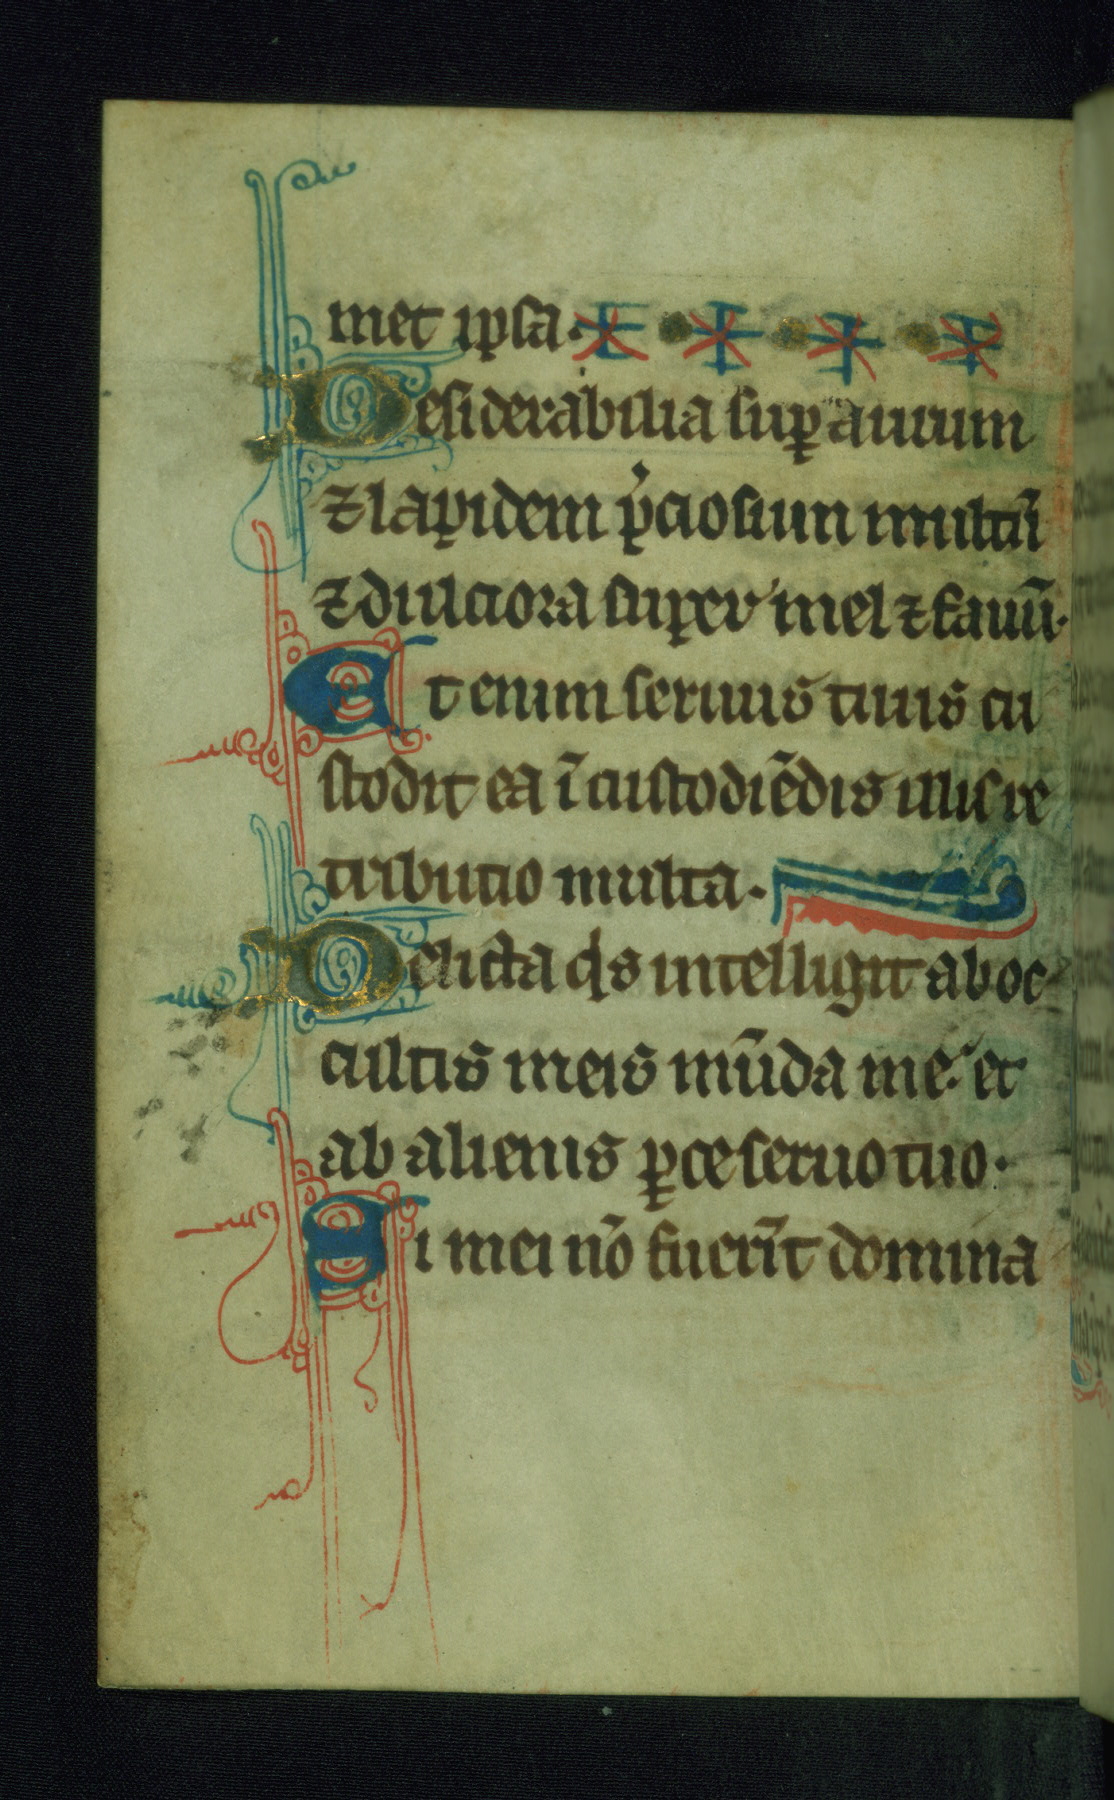 met ipsa.
Desiderabilia suꝑ aurum
⁊ lapidem p̾ciosum multū
⁊ dulciora super mel ⁊ fauū.
Et enim seruus tuus cu
stodit ea ī custodiēdis illis re
tributio multa.
Delicta q̇s intelligit ab oc
cultis meis mūda me. et
ab alienis ꝑce seruo tuo.
Si mei nō fuerīt domina